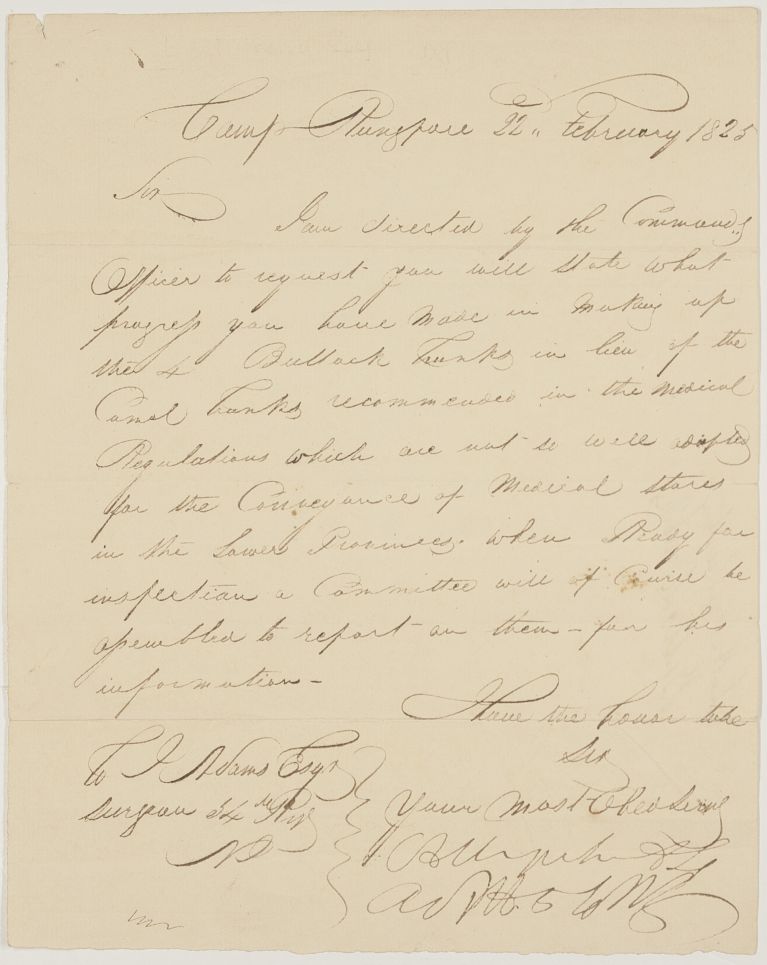 Camp Rungpore 22,, February 1825
Sir
I am directed by the Command,,g
Officer to request you will state what
progress you have made in making up
the 4 Bullock Trunks in lieu of the
Camel Trunks recommended in the Medical
Regulations which are not so well adapted
for the Conveyance of Medical stores
in the Lower Provinces. when Ready for
inspection a Committee will of Course be
assembled to report on them - for his
information -
I have the honor to be
Sir
To J Adams Esqr
Surgeon 34th
Your most Obed Serv